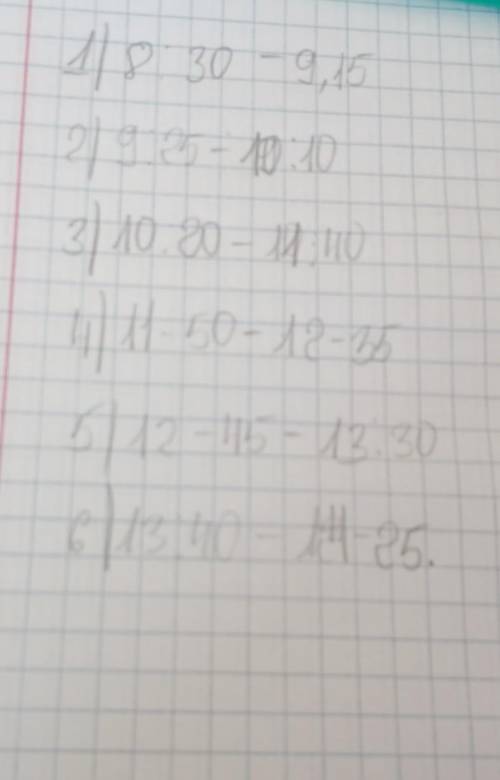 1) 8:30 - 9,15
2) 9:25 - 10:10
3) 10.20 - 11:40
4) 11-50 - 12-35
5) 12-45 - 13:30
6) 13:40 - 14-25.